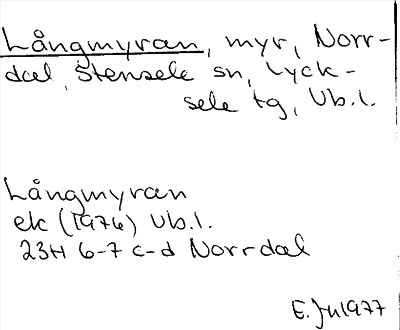 Långmyran, myr, Norr-
dal, Stensele sn, Lyck-
sele tg, Vb.l.
Långmyran
ek (1976) Vb.l.
23H 6-7 c-d Norrdal
E. Ju 1977